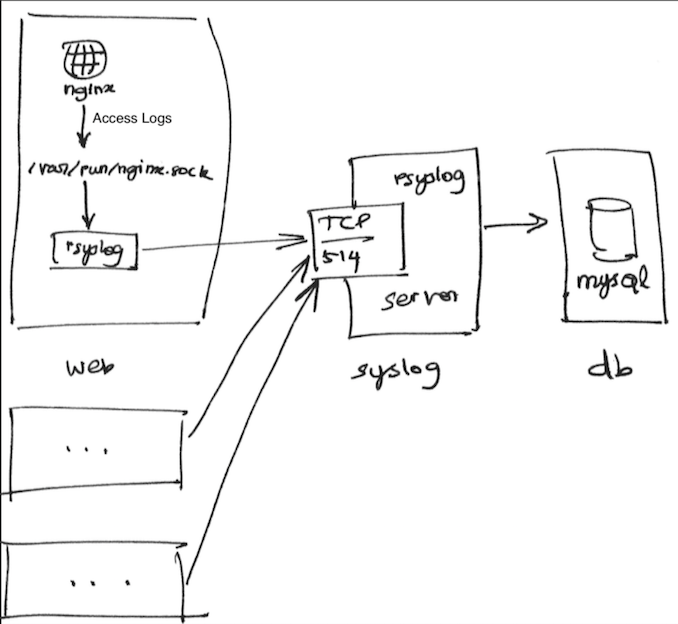 nginx
Access Logs
/var/run/nginx.sock
rsyslog
web
. . .
. . .
TCP
514
rsyslog
server
syslog
mysql
db